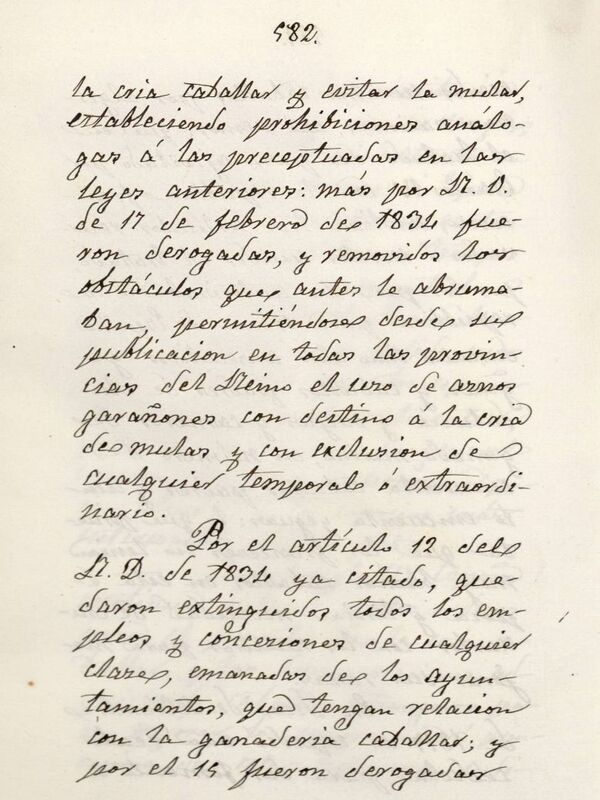 582.
la cria caballar y evitar la mular,
estableciendo prohibiciones análo-
gas á las preceptuadas en las
leyes anteriores: más por R. D.
de 17 de febrero de 1834 fue-
ron derogadas, y removidos los
obstáculos que antes le abruma-
ban, permitiéndose desde su
publicacion en todas las provin-
cias del Reino el uso de asnos
garañones con destino á la cria
de mulas y con exclusion de
cualquier temporal ó extraordi-
nario.
Por el artículo 12 del
R. D. de 1834 ya citado, que-
daron extinguidos todos los em-
pleos y conceziones de cualquier
clase, emanadas de los ayun-
tamientos, que tengan relacion
con la ganaderia caballar; y
por el 15 fueron derogadas